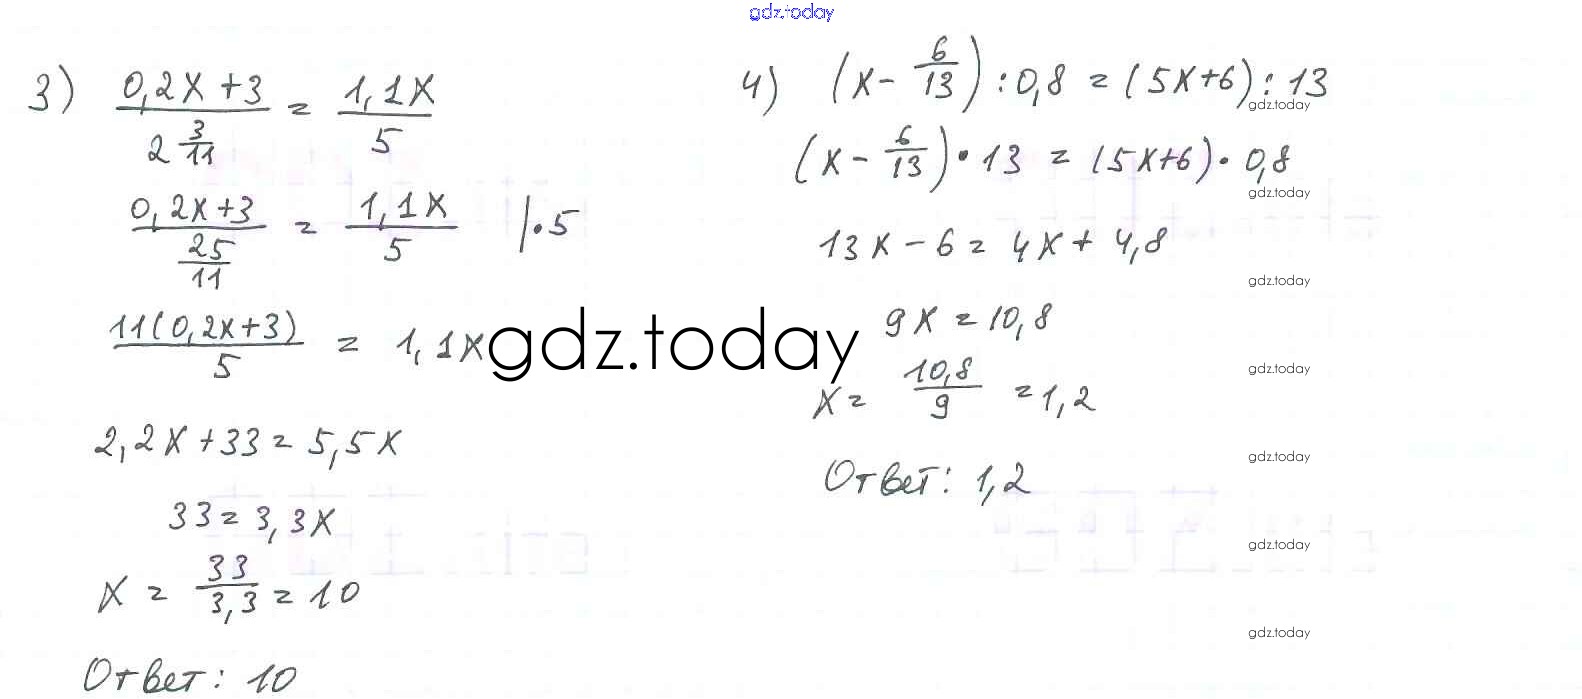 gdz.today
3) (0,2x+3)/(2 3/11) = 1,1x/5
(0,2x+3)/(25/11) = 1,1x/5 |·5
11(0,2x+3)/5 = 1,1x
2,2x+33=5,5x
33=3,3x
x = 33/3,3 = 10
Ответ: 10
gdz.today
4) (x - 6/13) : 0,8 = (5x+6) : 13
gdz.today
(x - 6/13) · 13 = (5x+6) · 0,8
gdz.today
13x - 6 = 4x + 4,8
gdz.today
9x = 10,8
gdz.today
x = 10,8/9 = 1,2
gdz.today
Ответ: 1,2
gdz.today
gdz.today